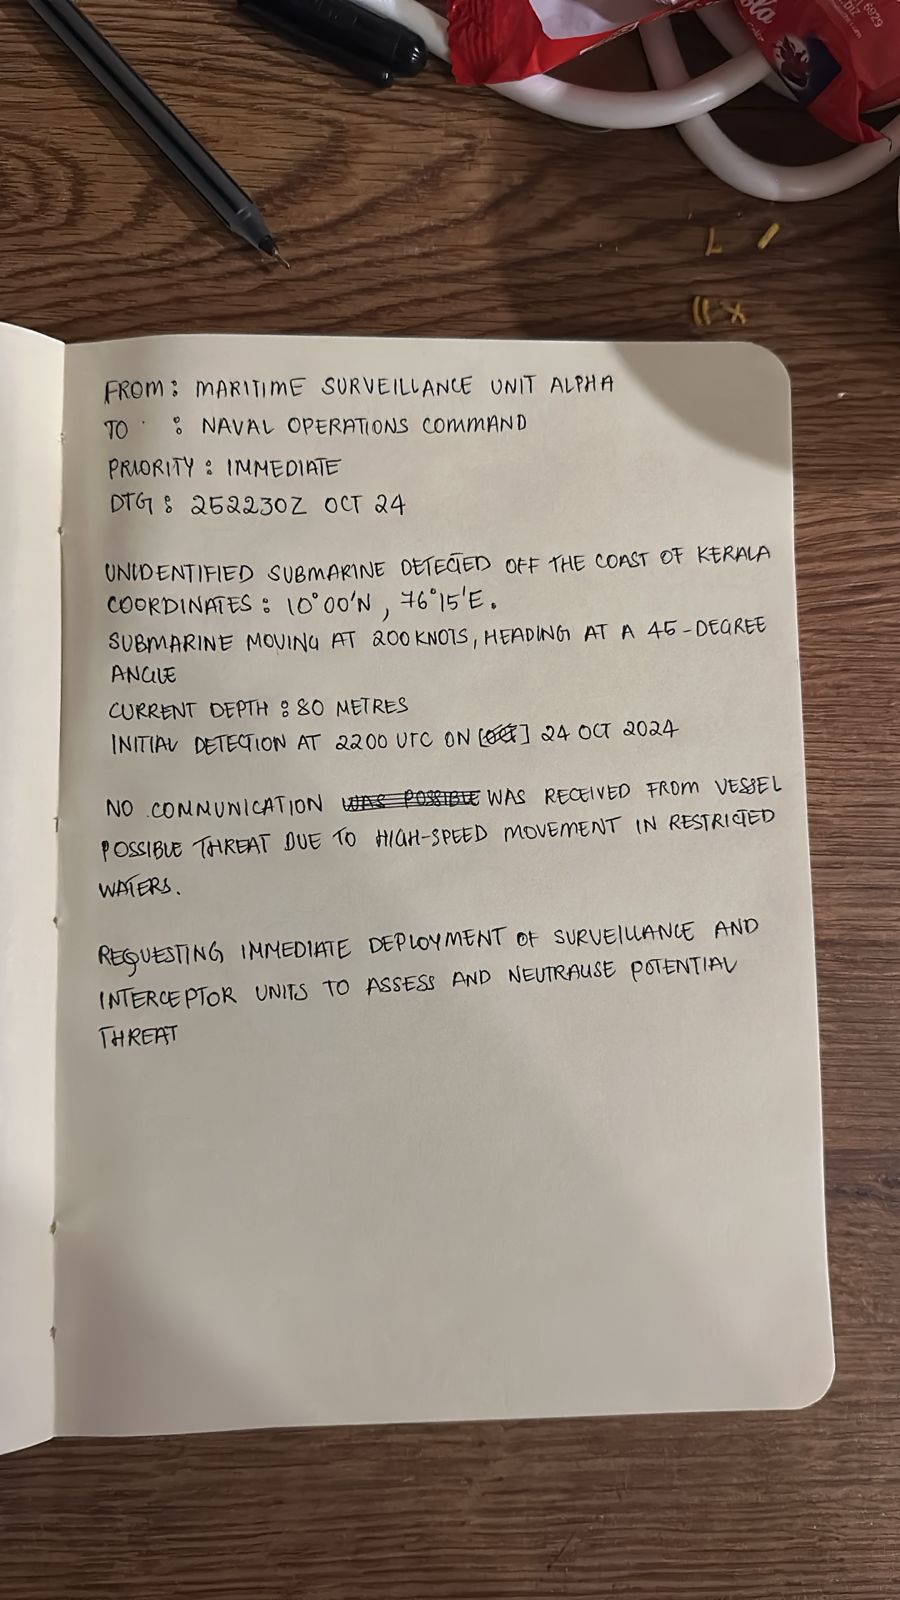 ola
6929
FROM: MARITIME SURVEILLANCE UNIT ALPHA
TO : NAVAL OPERATIONS COMMAND
PRIORITY : IMMEDIATE
DTG : 252230Z OCT 24
UNIDENTIFIED SUBMARINE DETECTED OFF THE COAST OF KERALA
COORDINATES : 10°00'N , 76°15'E.
SUBMARINE MOVING AT 200 KNOTS, HEADING AT A 45-DEGREE
ANGLE
CURRENT DEPTH : 80 METRES
INITIAL DETECTION AT 2200 UTC ON [] 24 OCT 2024
NO COMMUNICATION WAS POSSIBLE WAS RECEIVED FROM VESSEL
POSSIBLE THREAT DUE TO HIGH-SPEED MOVEMENT IN RESTRICTED
WATERS.
REQUESTING IMMEDIATE DEPLOYMENT OF SURVEILLANCE AND
INTERCEPTOR UNITS TO ASSESS AND NEUTRALISE POTENTIAL
THREAT